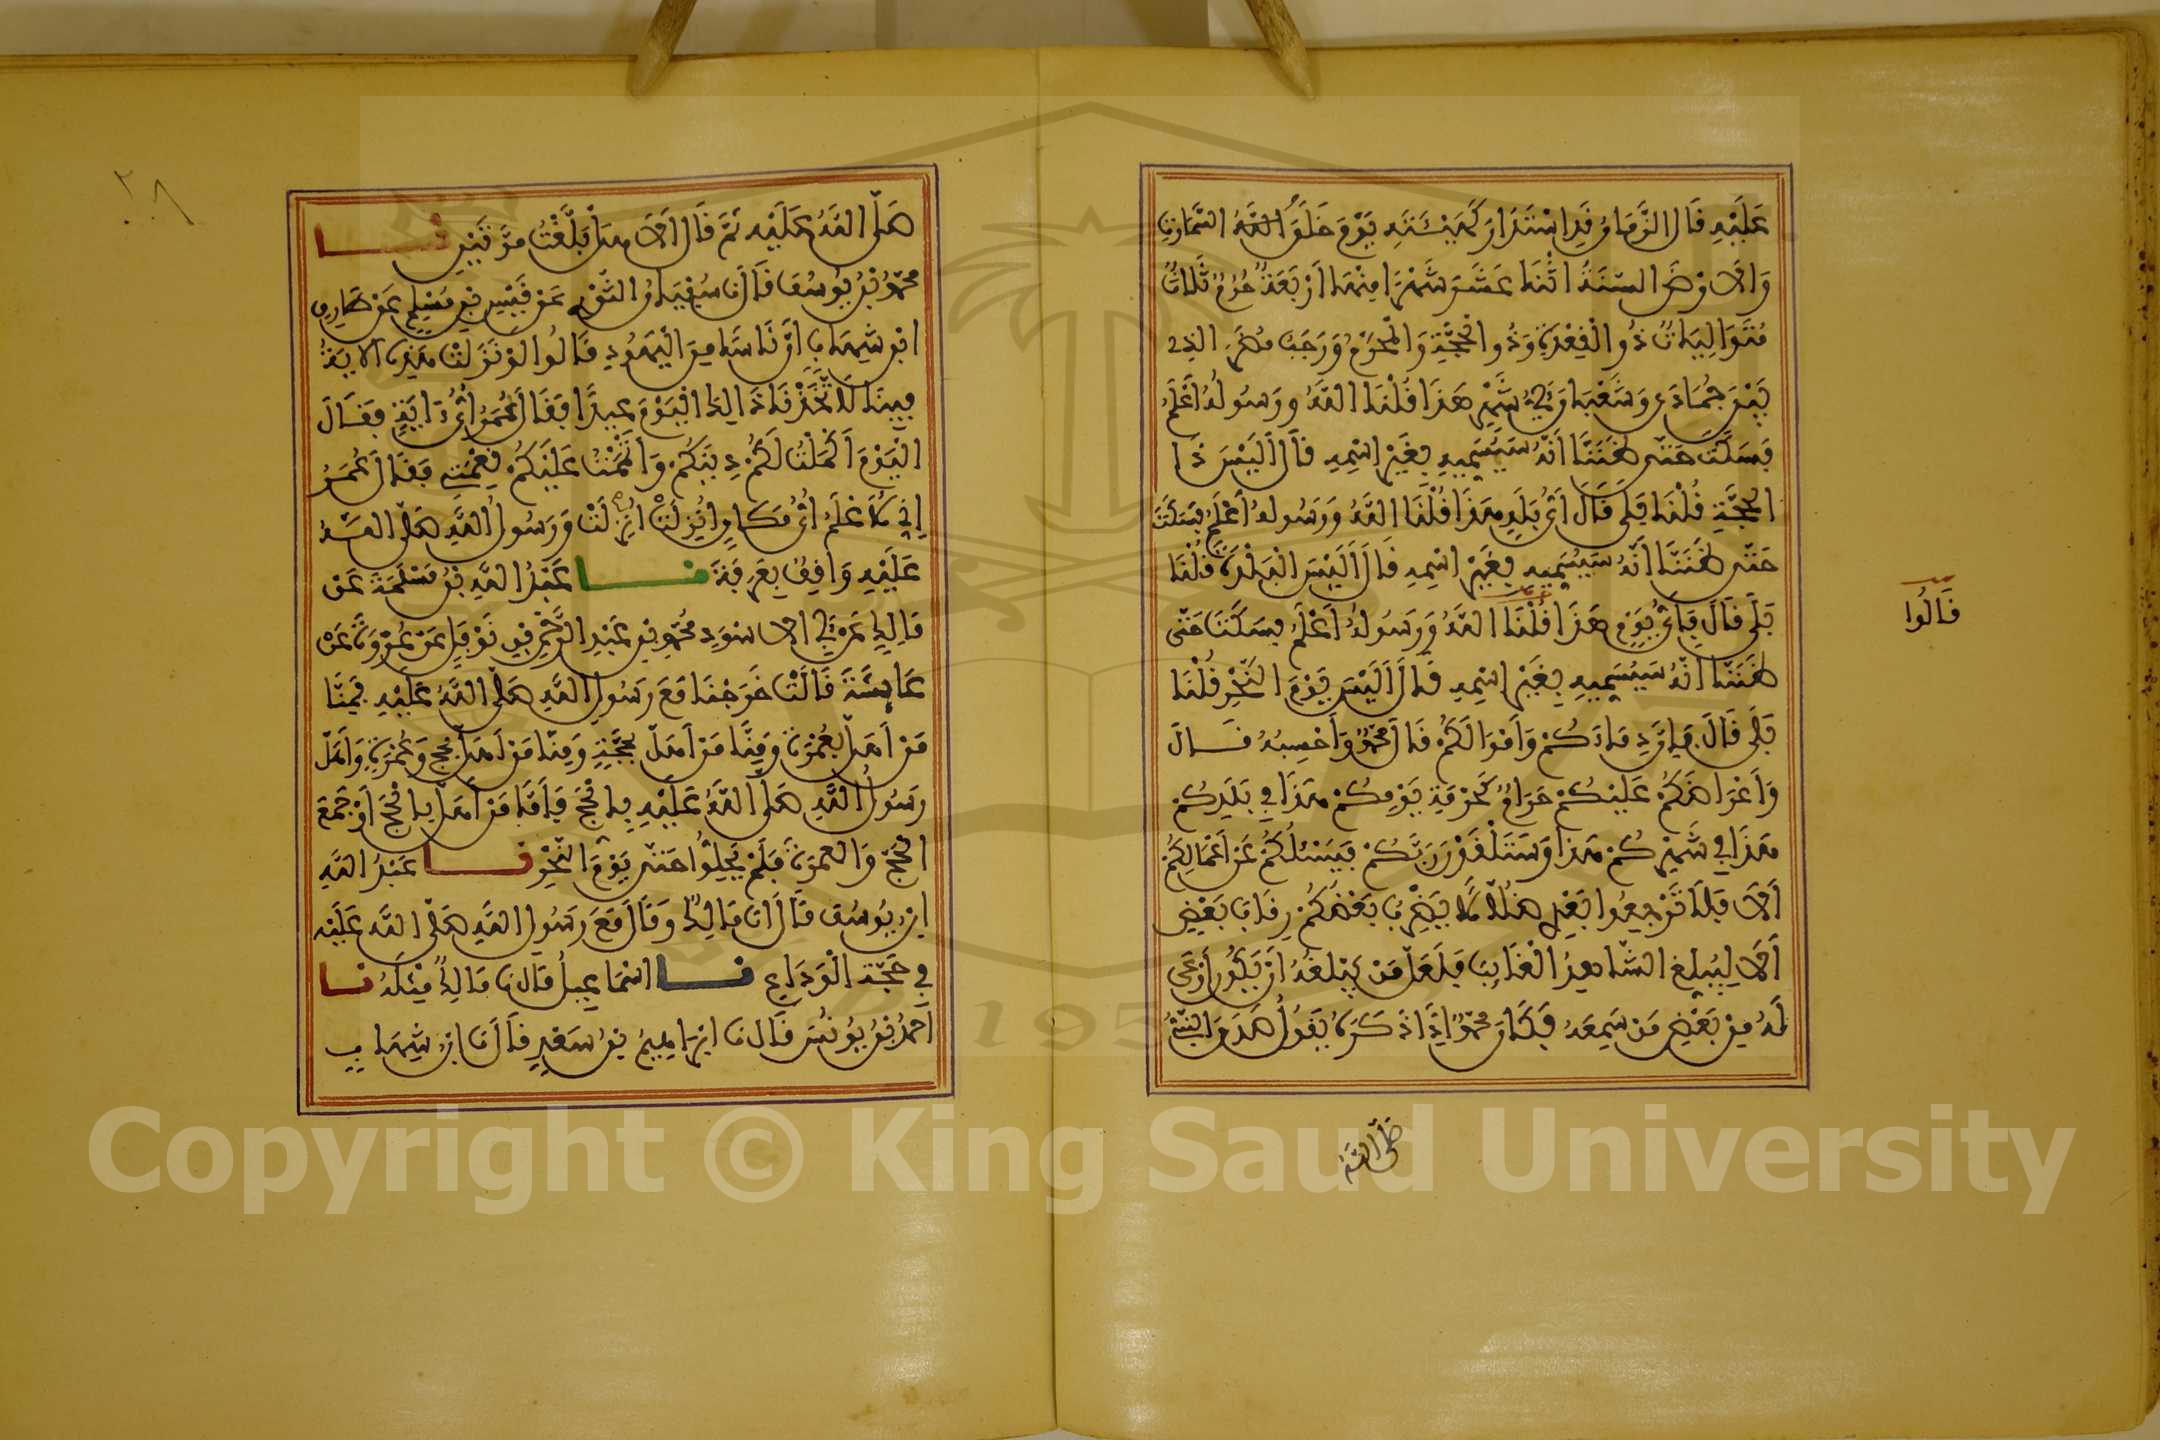 عَلَيْهِ قَالَ الزَّمَانُ قَدِ اسْتَدَارَ كَهَيْئَتِهِ يَوْمَ خَلَقَ اللَّهُ السَّمَاوَاتِ
وَالَارْضَ السَّنَةُ اثْنَا عَشَرَ شَهْرًا مِنْهَا أَرْبَعَةٌ حُرُمٌ ثَلَاثٌ
مُتَوَالِيَاتٌ ذُو الْقِعْدَةِ وَذُو الْحِجَّةِ وَالْمُحَرَّمُ وَرَجَبُ مُضَرَ الذِي
بَيْنَ جُمَادَى وَشَعْبَانَ أَيُّ شَهْرٍ هَذَا قُلْنَا اللَّهُ وَرَسُولُهُ أَعْلَمُ
فَسَكَتَ حَتَّى ظَنَنَّا أَنَّهُ سَيُسَمِّيهِ بِغَيْرِ اسْمِهِ قَالَ أَلَيْسَ ذَا
الْحِجَّةِ قُلْنَا بَلَى قَالَ أَيُّ بَلَدٍ هَذَا قُلْنَا اللَّهُ وَرَسُولُهُ أَعْلَمُ فَسَكَتَ
حَتَّى ظَنَنَّا أَنَّهُ سَيُسَمِّيهِ بِغَيْرِ اسْمِهِ قَالَ أَلَيْسَ الْبَلْدَةَ قُلْنَا
بَلَى قَالَ فَأَيُّ يَوْمٍ هَذَا قُلْنَا اللَّهُ وَرَسُولُهُ أَعْلَمُ فَسَكَتَ حَتَّى
قَالُوا
ظَنَنَّا أَنَّهُ سَيُسَمِّيهِ بِغَيْرِ اسْمِهِ قَالَ أَلَيْسَ يَوْمَ النَّحْرِ قُلْنَا
بَلَى قَالَ فَإِنَّ دِمَاءَكُمْ وَأَمْوَالَكُمْ قَالَ مُحَمَّدٌ وَأَحْسِبُهُ قَالَ
وَأَعْرَاضَكُمْ عَلَيْكُمْ حَرَامٌ كَحُرْمَةِ يَوْمِكُمْ هَذَا فِي بَلَدِكُمْ
هَذَا فِي شَهْرِكُمْ هَذَا وَسَتَلْقَوْنَ رَبَّكُمْ فَيَسْئَلُكُمْ عَنْ أَعْمَالِكُمْ
أَلَا فَلَا تَرْجِعُوا بَعْدِي ضُلَّالًا يَضْرِبُ بَعْضُكُمْ رِقَابَ بَعْضٍ
أَلَا لِيُبَلِّغِ الشَّاهِدُ الْغَائِبَ فَلَعَلَّ مَنْ يُبْلَغُهُ أَنْ يَكُونَ أَوْعَى
لَهُ مِنْ بَعْضِ مَنْ سَمِعَهُ فَكَانَ مُحَمَّدٌ إِذَا ذَكَرَهُ يَقُولُ صَدَقَ النَّبِيُّ
صَلَّى اللَّهُ
٢٠٨
صَلَّى اللَّهُ عَلَيْهِ ثُمَّ قَالَ أَلَا هَلْ بَلَّغْتُ مَرَّتَيْنِ نا
مُحَمَّدُ بْنُ يُوسُفَ قَالَ نَا سُفْيَانُ الثَّوْرِيُّ عَنْ قَيْسِ بْنِ مُسْلِمٍ عَنْ طَارِقِ
ابْنِ شِهَابٍ أَنَّ نَاسًا مِنَ الْيَهُودِ قَالُوا لَوْ نَزَلَتْ هَذِهِ الْآيَةُ
فِينَا لَاتَّخَذْنَا ذَالِكَ الْيَوْمَ عِيدًا فَقَالَ عُمَرُ أَيُّ ءَايَةٍ فَقَالَ
الْيَوْمَ أَكْمَلْتُ لَكُمْ دِينَكُمْ وَأَتْمَمْتُ عَلَيْكُمْ نِعْمَتِي فَقَالَ عُمَرُ
إِنِّي لَأَعْلَمُ أَيَّ مَكَانٍ أُنْزِلَتْ أُنْزِلَتْ وَرَسُولُ اللَّهِ صَلَّى اللَّهُ
عَلَيْهِ وَاقِفٌ بِعَرَفَةَ نا عَبْدُ اللَّهِ بْنُ مَسْلَمَةَ عَنْ
مَالِكٍ عَنْ أَبِي الَاسْوَدِ مُحَمَّدِ بْنِ عَبْدِ الرَّحْمَنِ بْنِ نَوْفَلٍ عَنْ عُرْوَةَ عَنْ
عَائِشَةَ قَالَتْ خَرَجْنَا مَعَ رَسُولِ اللَّهِ صَلَّى اللَّهُ عَلَيْهِ فَمِنَّا
مَنْ أَهَلَّ بِعُمْرَةٍ وَمِنَّا مَنْ أَهَلَّ بِحَجَّةٍ وَمِنَّا مَنْ أَهَلَّ بِحَجٍّ وَعُمْرَةٍ وَأَهَلَّ
رَسُولُ اللَّهِ صَلَّى اللَّهُ عَلَيْهِ بِالْحَجِّ فَأَمَّا مَنْ أَهَلَّ بِالْحَجِّ أَوْ جَمَعَ
الْحَجَّ وَالْعُمْرَةَ فَلَمْ يَحِلُّوا حَتَّى يَوْمَ النَّحْرِ نا عَبْدُ اللَّهِ
ابْنُ يُوسُفَ قَالَ أَنَا مَالِكٌ وَقَالَ مَعَ رَسُولِ اللَّهِ صَلَّى اللَّهُ عَلَيْهِ
فِي حَجَّةِ الْوَدَاعِ نا إِسْمَاعِيلُ قَالَ نَا مَالِكٌ مِثْلَهُ نا
أَحْمَدُ بْنُ يُونُسَ قَالَ نَا إِبْرَاهِيمُ بْنُ سَعْدٍ قَالَ نَا ابْنُ شِهَابٍ
Copyright © King Saud University
195